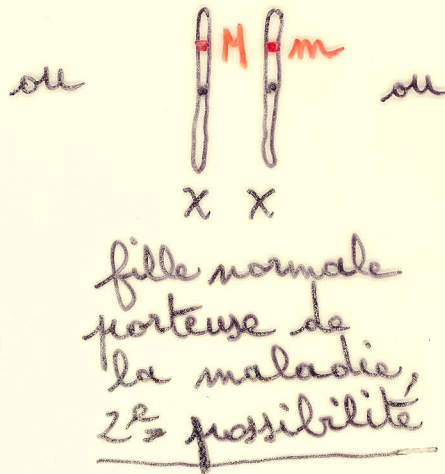 M m
ou ou
X X
fille normale
porteuse de
la maladie,
2e possibilité